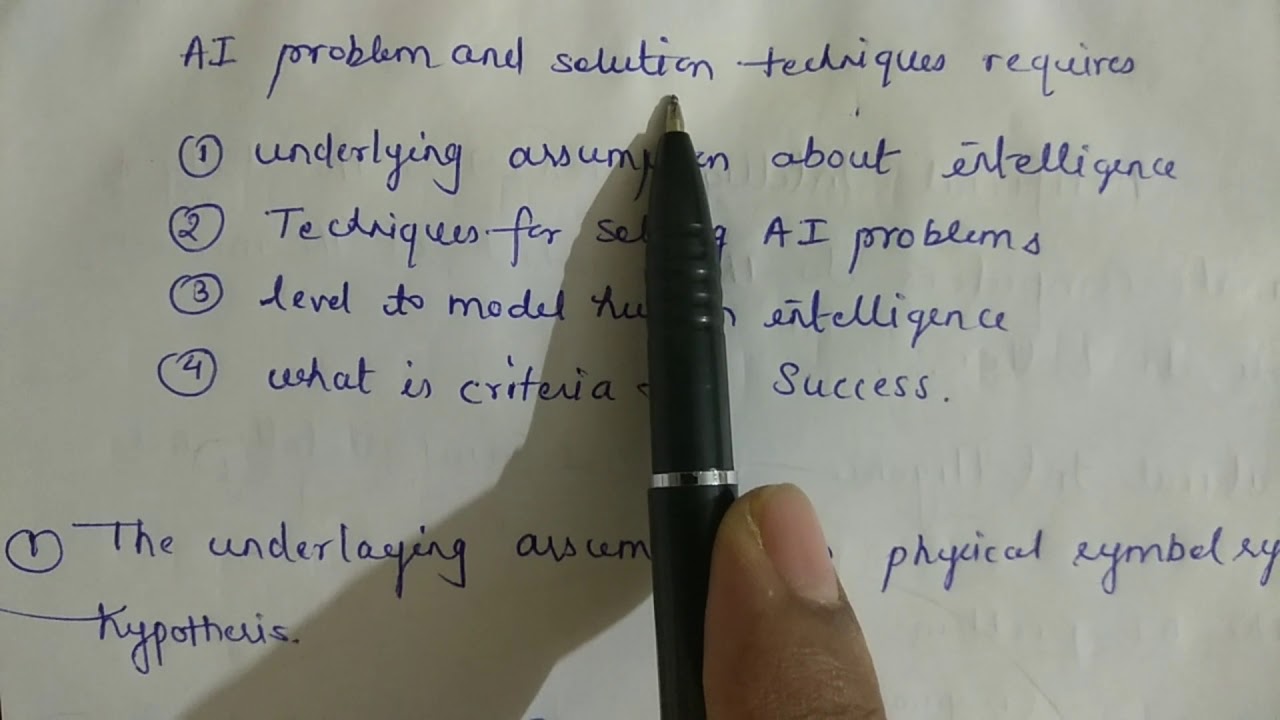 AI problem and solution techniques requires
① underlying about intelligence
② Techniques for AI problems
③ level to model intelligence
④ what is criteria Success.
① The underlaying physical symbol
hypothesis.